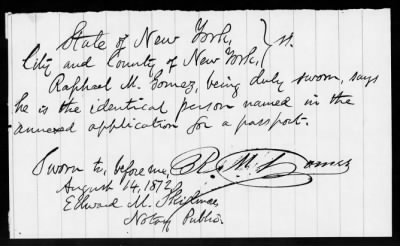 State of New York,
City and County of New York, } ss.
Raphael M. Gomez, being duly sworn, says
he is the identical person named in the
annexed application for a passport.
Sworn to, before me, R. M. Gomez
August 14, 1872
Edward M. Skidmore
Notary Public.